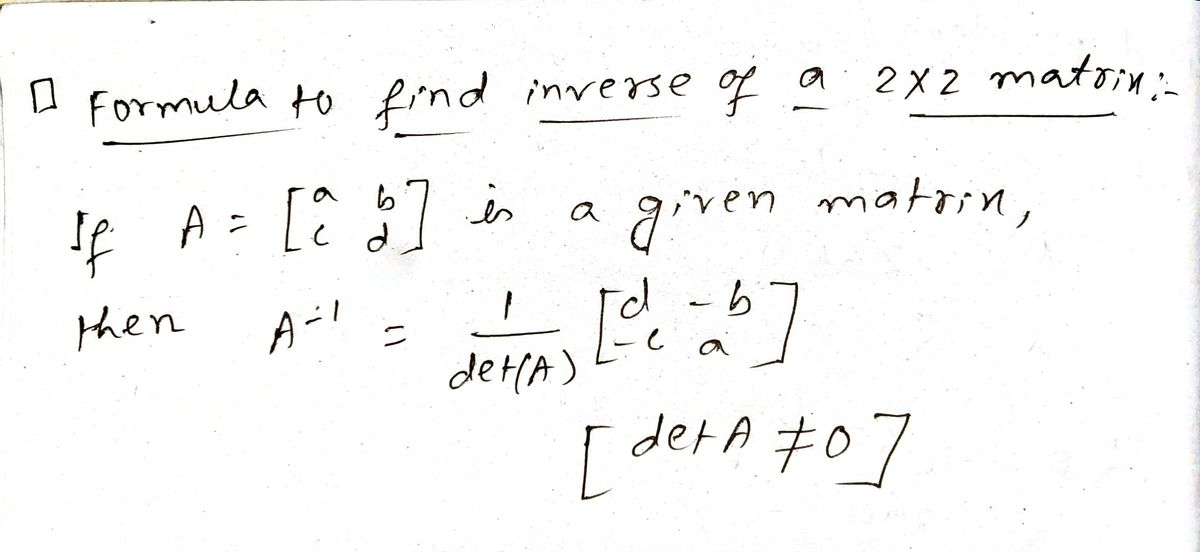 □ Formula to find inverse of a 2x2 matrix:-
If A = [a b; c d] is a given matrix,
then A⁻¹ = 1/det(A) [d -b; -c a]
[det A ≠ 0]